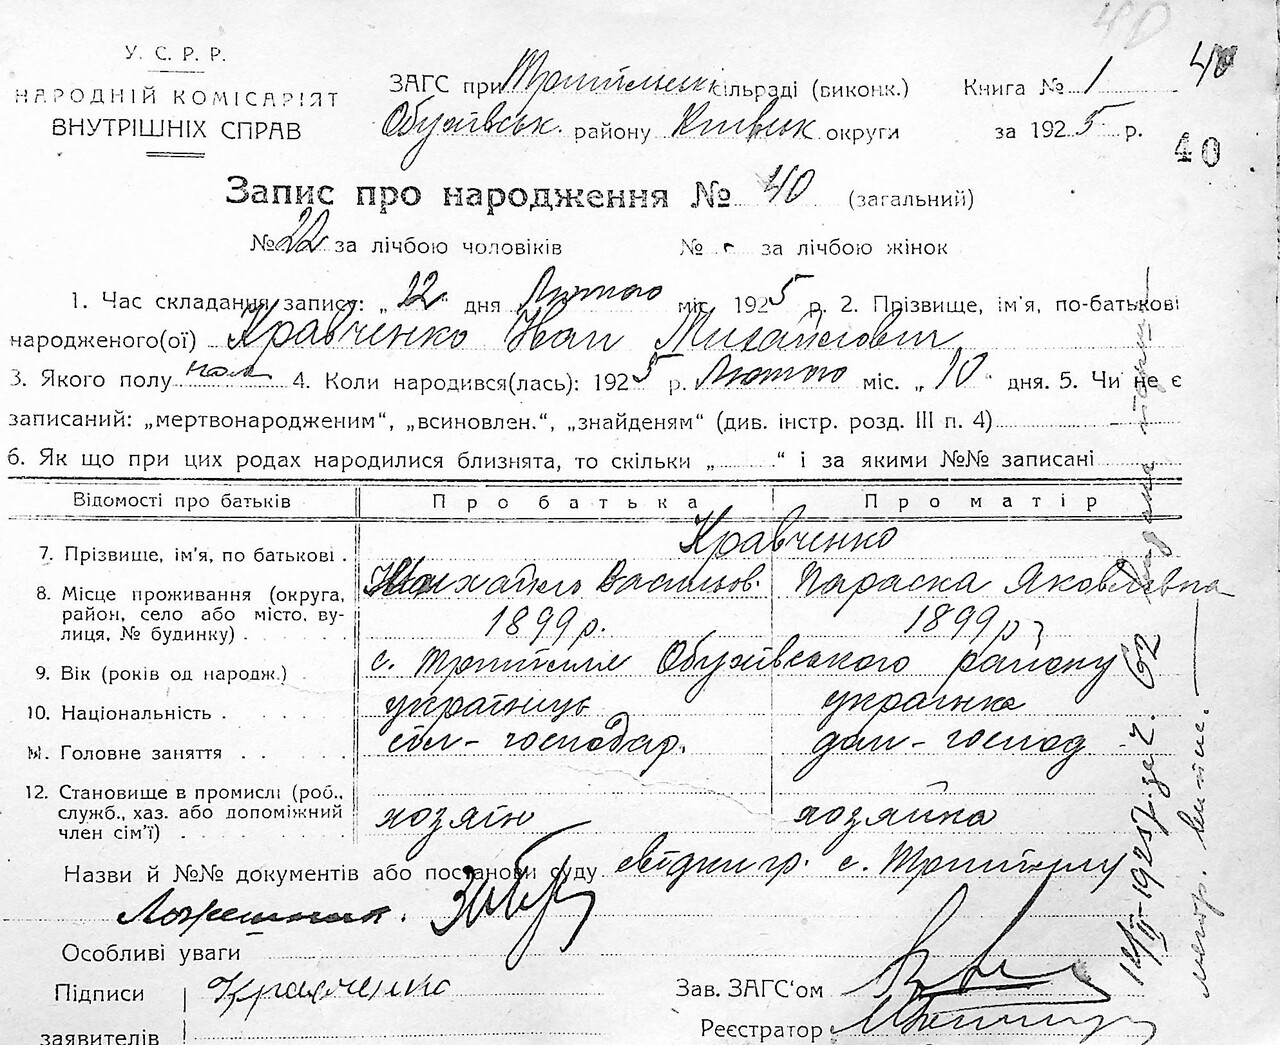 40
У. С. Р. Р.
НАРОДНІЙ КОМІСАРІЯТ
ВНУТРІШНІХ СПРАВ
ЗАГС при сільраді (виконк.)
Обухівськ. району Київськ округи
Книга № 1
40
за 1925 р.
40
Запис про народження № 40 (загальний)
№ 22 за лічбою чоловіків № - за лічбою жінок
1. Час складання запису: „22" дня Лютого міс. 1925 р. 2. Прізвище, ім'я, по-батькові
народженого(ої) Кравченко Іван Михайлович
3. Якого полу чол 4. Коли народився(лась): 1925 р. Лютого міс. „10" дня. 5. Чи не є
записаний: „мертвонародженим", „всиновлен.", „знайденям" (див. інстр. розд. III п. 4) -
6. Як що при цих родах народилися близнята, то скільки „ " і за якими №№ записані
Відомості про батьків Про батька Про матір
7. Прізвище, ім'я, по батькові . Кравченко
Михайло Васильов. Параска Яковлівна
8. Місце проживання (округа,
район, село або місто, ву-
лиця, № будинку) . 1899 р. 1899 р
9. Вік (років од народж.) с. Трипілля Обухівського району
10. Національність . українець українка
11. Головне заняття . сіл-господар. дом-господ
12. Становище в промислі (роб.,
служб., хаз. або допоміжний
член сім'ї) . хозяїн хозяйка
Назви й №№ документів або постанови суду с. Трипілля
Особливі уваги
Підписи Кравченко
заявителів
Зав. ЗАГС'ом
Реєстратор
14/II-1925р. за ч. 62 видана
метр. випис.